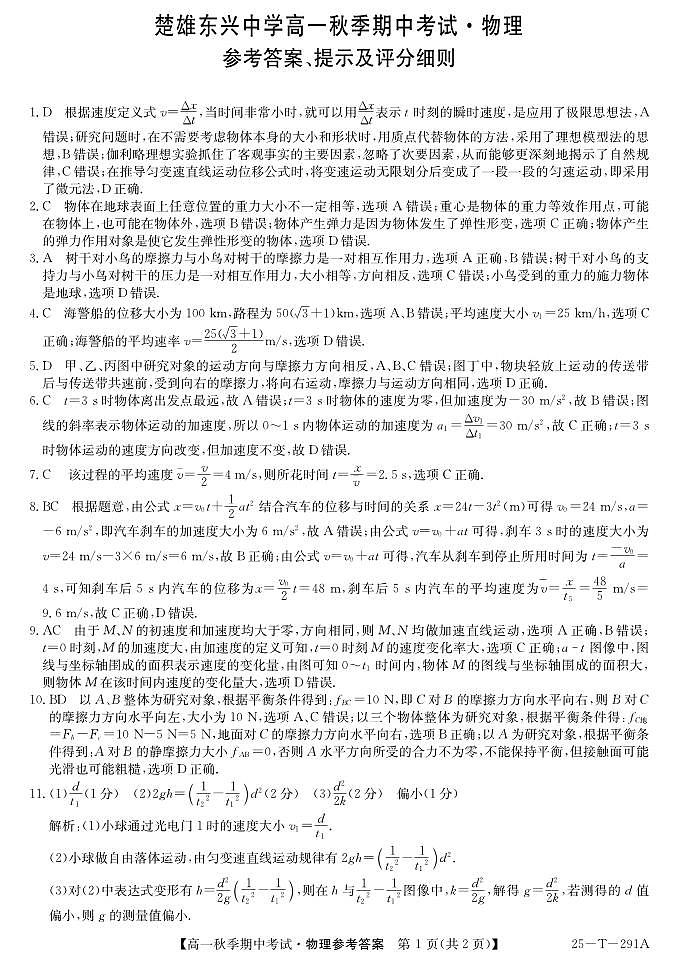 楚雄东兴中学高一秋季期中考试·物理
参考答案、提示及评分细则
1. D 根据速度定义式 v=Δx/Δt,当时间非常小时,就可以用Δx/Δt表示 t 时刻的瞬时速度,是应用了极限思想法,A
错误;研究问题时,在不需要考虑物体本身的大小和形状时,用质点代替物体的方法,采用了理想模型法的思
想,B 错误;伽利略理想实验抓住了客观事实的主要因素,忽略了次要因素,从而能够更深刻地揭示了自然规
律,C 错误;在推导匀变速直线运动位移公式时,将变速运动无限划分后变成了一段一段的匀速运动,即采用
了微元法,D 正确.
2. C 物体在地球表面上任意位置的重力大小不一定相等,选项 A 错误;重心是物体的重力等效作用点,可能
在物体上,也可能在物体外,选项 B 错误;物体产生弹力是因为物体发生了弹性形变,选项 C 正确;物体产生
的弹力作用对象是使它发生弹性形变的物体,选项 D 错误.
3. A 树干对小鸟的摩擦力与小鸟对树干的摩擦力是一对相互作用力,选项 A 正确,B 错误;树干对小鸟的支
持力与小鸟对树干的压力是一对相互作用力,大小相等,方向相反,选项 C 错误;小鸟受到的重力的施力物体
是地球,选项 D 错误.
4. C 海警船的位移大小为 100 km,路程为 50(√3+1)km,选项 A、B 错误;平均速度大小 v₁=25 km/h,选项 C
正确;海警船的平均速率 v=25(√3+1)/2 m/s,选项 D 错误.
5. D 甲、乙、丙图中研究对象的运动方向与摩擦力方向相反,A、B、C 错误;图丁中,物块轻放上运动的传送带
后与传送带共速前,受到向右的摩擦力,将向右运动,摩擦力与运动方向相同,选项 D 正确.
6. C t=3 s 时物体离出发点最远,故 A 错误;t=3 s 时物体的速度为零,但加速度为−30 m/s²,故 B 错误;图
线的斜率表示物体运动的加速度,所以 0～1 s 内物体运动的加速度为 a₁=Δv₁/Δt₁=30 m/s²,故 C 正确;t=3 s
时物体运动的速度方向改变,但加速度不变,故 D 错误.
7. C 该过程的平均速度 v̄=v/2=4 m/s,则所花时间 t=x/v̄=2.5 s,选项 C 正确.
8. BC 根据题意,由公式 x=v₀t+1/2at² 结合汽车的位移与时间的关系 x=24t−3t²(m)可得 v₀=24 m/s,a=
−6 m/s²,即汽车刹车的加速度大小为 6 m/s²,故 A 错误;由公式 v=v₀+at 可得,刹车 3 s 时的速度大小为
v=24 m/s−3×6 m/s=6 m/s,故 B 正确;由公式 v=v₀+at 可得,汽车从刹车到停止所用时间为 t=−v₀/a=
4 s,可知刹车后 5 s 内汽车的位移为 x=v₀/2 t=48 m,刹车后 5 s 内汽车的平均速度为 v̄=x/t₅=48/5 m/s=
9.6 m/s,故 C 正确,D 错误.
9. AC 由于 M、N 的初速度和加速度均大于零,方向相同,则 M、N 均做加速直线运动,选项 A 正确,B 错误;
t=0 时刻,M 的加速度大,由加速度的定义可知,t=0 时刻 M 的速度变化率大,选项 C 正确;a-t 图像中,图
线与坐标轴围成的面积表示速度的变化量,由图可知 0～t₁ 时间内,物体 M 的图线与坐标轴围成的面积大,
则物体 M 在该时间内速度的变化量大,选项 D 错误.
10. BD 以 A、B 整体为研究对象,根据平衡条件得到:fBC=10 N,即 C 对 B 的摩擦力方向水平向右,则 B 对 C
的摩擦力方向水平向左,大小为 10 N,选项 A、C 错误;以三个物体整体为研究对象,根据平衡条件得:fC地
=Fb−Fc=10 N−5 N=5 N,地面对 C 的摩擦力方向水平向右,选项 B 正确;以 A 为研究对象,根据平衡条
件得到:A 对 B 的静摩擦力大小 fAB=0,否则 A 水平方向所受的合力不为零,不能保持平衡,但接触面可能
光滑也可能粗糙,选项 D 正确.
11. (1)d/t₁(1 分) (2)2gh=(1/t₂²−1/t₁²)d²(2 分) (3)d²/2k(2 分) 偏小(1 分)
解析:(1)小球通过光电门 1 时的速度大小 v₁=d/t₁.
(2)小球做自由落体运动,由匀变速直线运动规律有 2gh=(1/t₂²−1/t₁²)d².
(3)对(2)中表达式变形有 h=d²/2g(1/t₂²−1/t₁²),则在 h 与1/t₂²−1/t₁²图像中,k=d²/2g,解得 g=d²/2k,若测得的 d 值
偏小,则 g 的测量值偏小.
【高一秋季期中考试·物理参考答案 第 1 页(共 2 页)】 25－T－291A